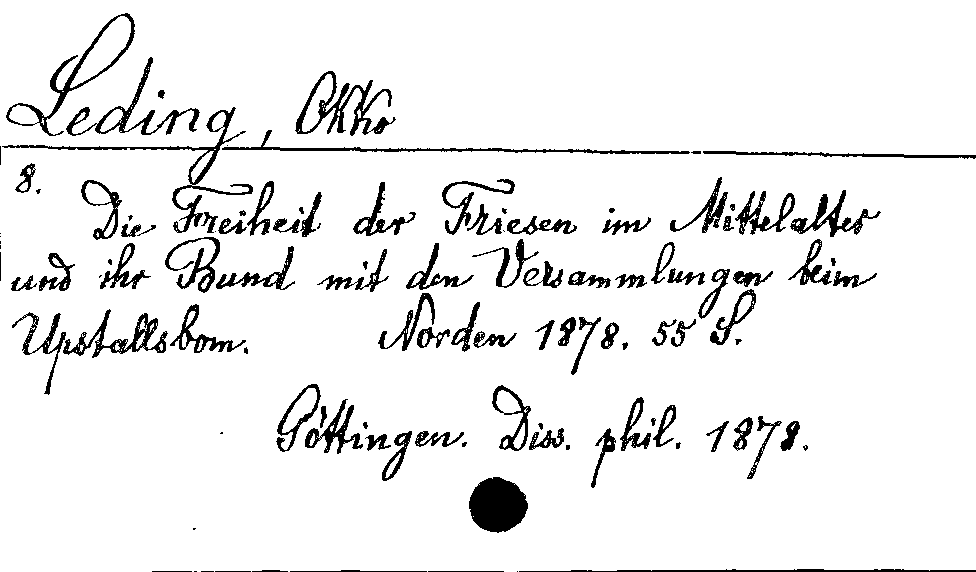 Leding, Okko
8.
Die Freiheit der Friesen im Mittelalter
und ihr Bund mit den Versammlungen beim
Upstallsbom. Norden 1878. 55 S.
Göttingen. Diss. phil. 1878.